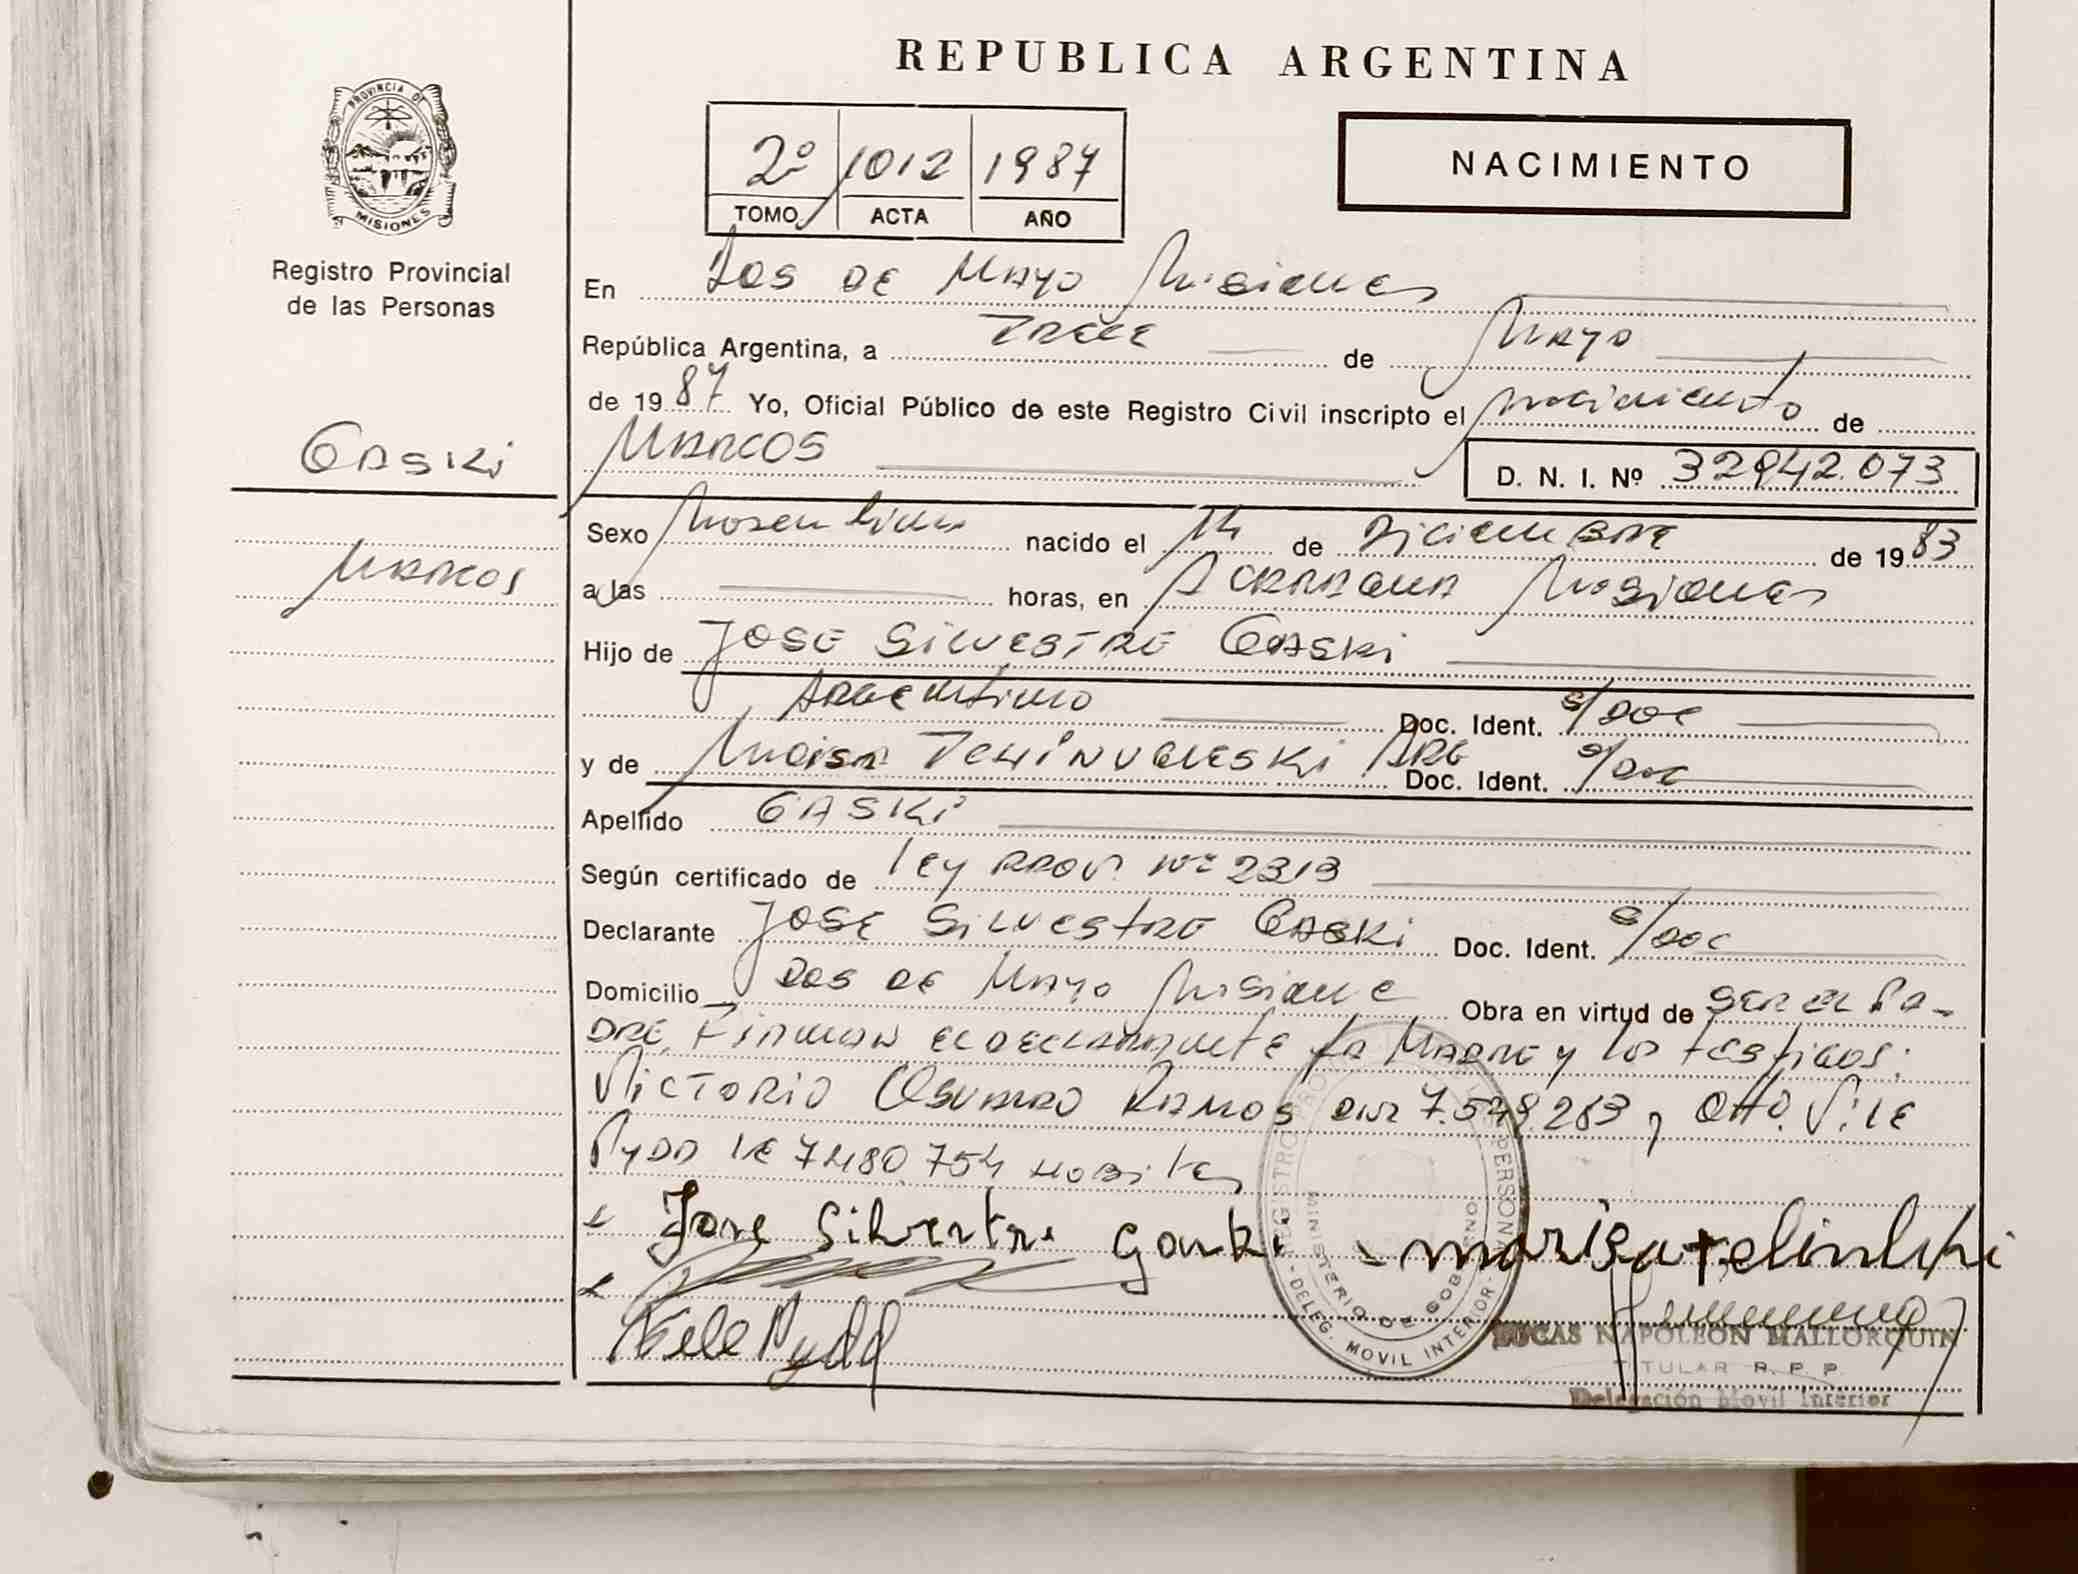 REPUBLICA ARGENTINA
PROVINCIA DE
MISIONES
Registro Provincial
de las Personas
2º 1012 1987
TOMO ACTA AÑO
NACIMIENTO
En Dos de Mayo Misiones
República Argentina, a Trece de Mayo
de 1987 Yo, Oficial Público de este Registro Civil inscripto el nacimiento de
Gaski
Marcos
D. N. I. Nº 32942.073
Marcos
Sexo Masculino nacido el 14 de Diciembre de 1983
a las horas, en Acaraguá Misiones
Hijo de Jose Silvestre Gaski
Argentino Doc. Ident. s/doc
y de Arg Doc. Ident. s/doc
Apellido Gaski
Según certificado de ley Prov. Nº 2313
Declarante Jose Silvestre Gaski Doc. Ident. s/doc
Domicilio Dos de Mayo Misione Obra en virtud de ser el Pa-
dre, Firman el declarante la Madre y los testigos:
Victorio Osvaldo Ramos DNI 7.548.263 y Otto Vile
Pydd LE 7480.754
Jose Silvestre Gaski
Vele Pydd
MINISTERIO DE GOBIERNO
DELEG. MOVIL INTERIOR
LUCAS NAPOLEON MALLORQUIN
TITULAR R. P. P.
Delegación Movil Interior